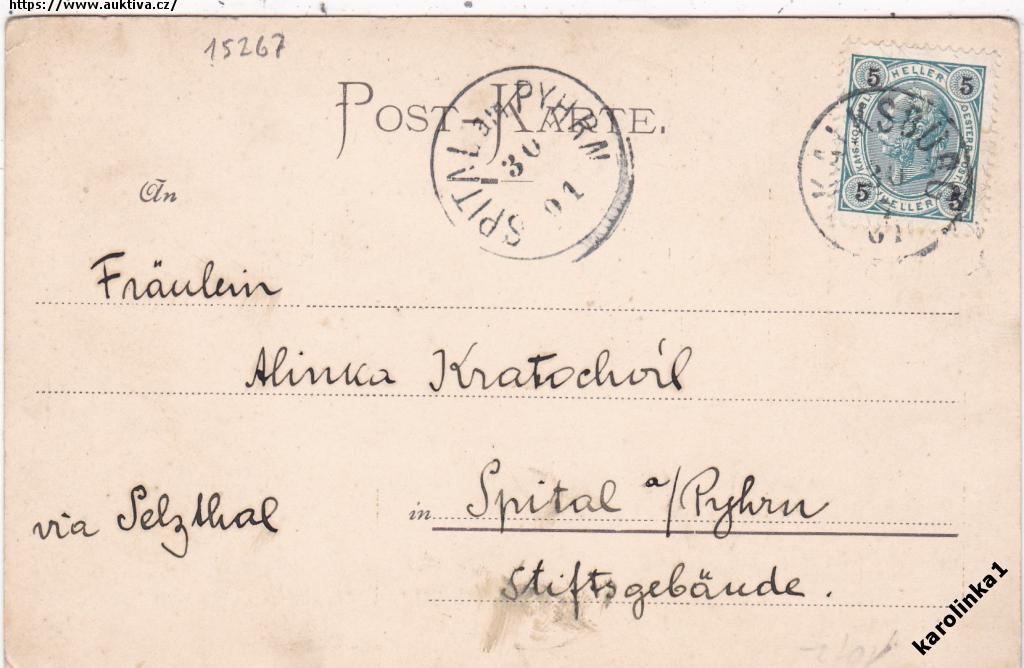 https://www.auktiva.cz/
15267
POST-KARTE.
SPITAL AM PYHRN
30
01
5 HELLER 5
5 HELLER 5
01
An
Fräulein
Alinka Kratochvíl
via Selzthal in Spital a/Pyhrn
Stiftsgebäude.
karolinka1